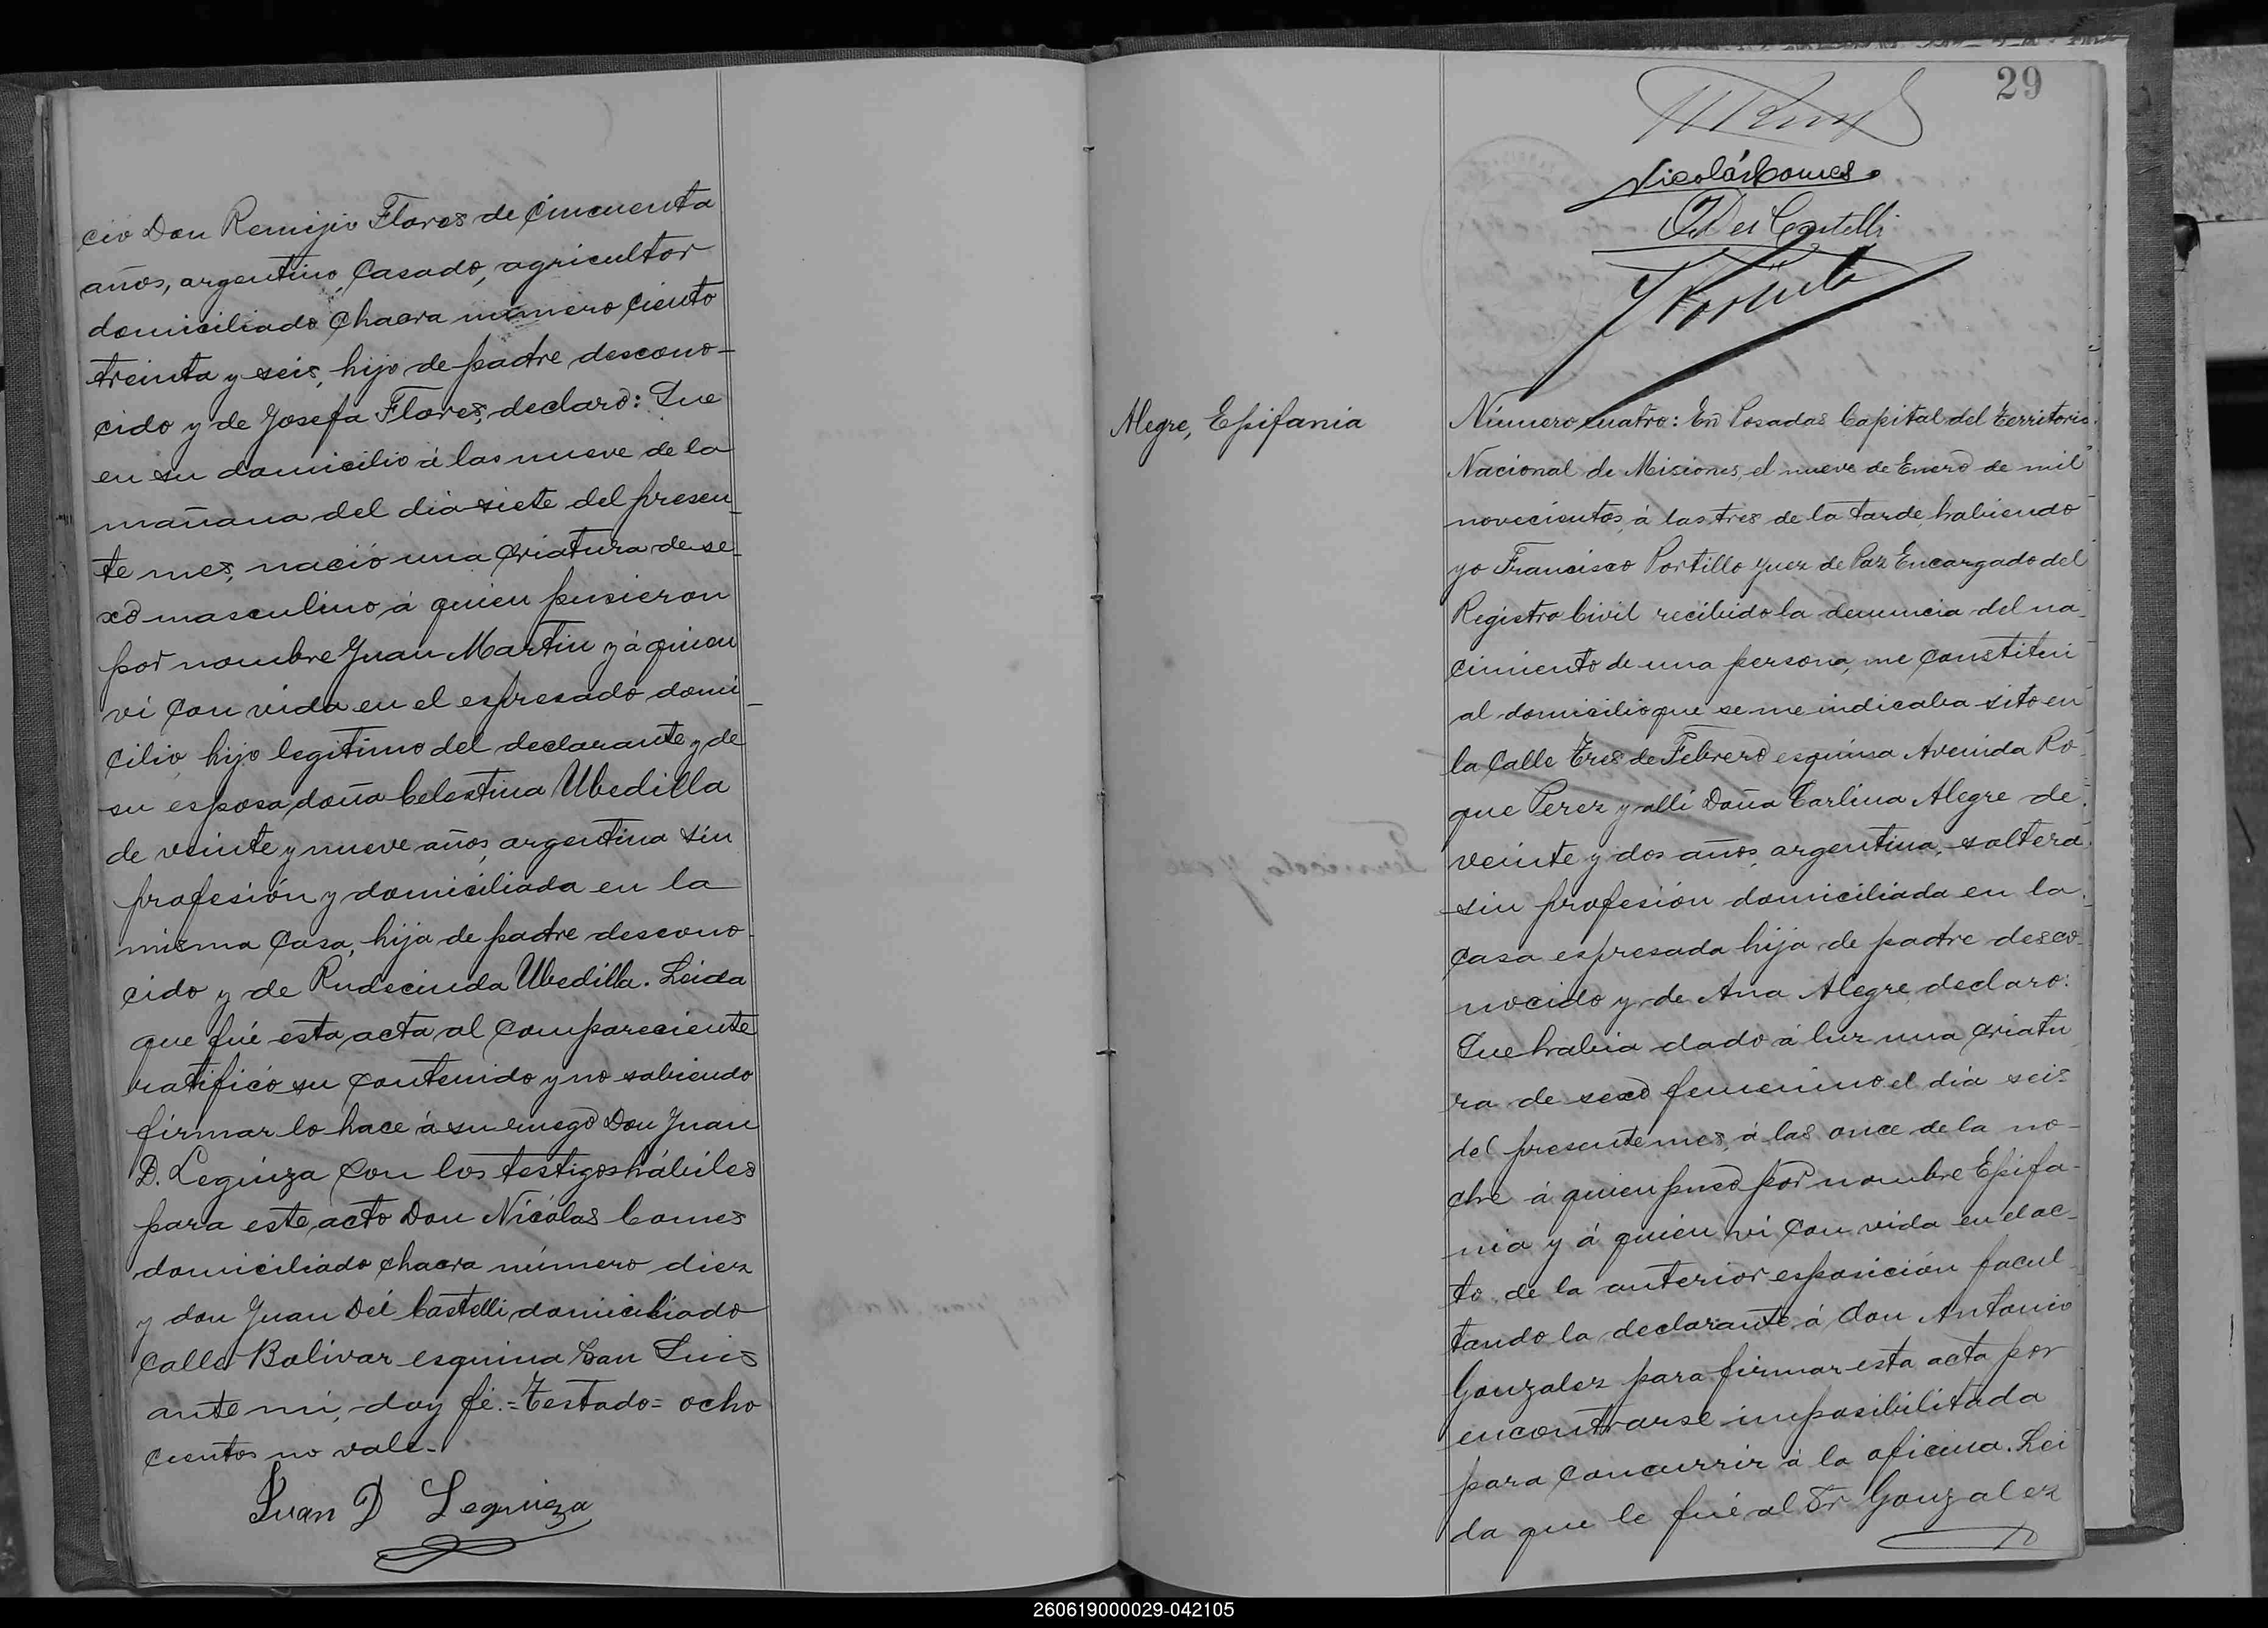 ció Don Remijio Flores de cincuenta
años, argentino, casado, agricultor
domiciliado chacra número ciento
treinta y seis, hijo de padre descono-
cido y de Josefa Flores, declaró: Que
en su domicilio á las nueve de la
mañana del dia siete del presen-
te mes, nació una criatura de se-
xo masculino á quien pusieron
por nombre Juan Martin y á quien
vi con vida en el espresado domi-
cilio, hijo legitimo del declarante y de
su esposa doña Celestina Ubedilla
de veinte y nueve años, argentina sin
profesión y domiciliada en la
misma casa, hija de padre descono-
cido y de Rudecinda Ubedilla. Leida
que fué esta acta al compareciente
ratificó su contenido y no sabiendo
firmar lo hace á su ruego Don Juan
D. Leguiza con los testigos hábiles
para este acto Don Nicólas Comes
domiciliado chacra número diez
y don Juan Dei Castelli domiciliado
calle Bolivar esquina San Luis
ante mi, doy fé.=Testado= ocho
cientos no vale-
Juan D Leguiza
29
Nicolás Comes
Dei Castelli
Alegre, Epifania
Número cuatro: En Posadas Capital del Territorio
Nacional de Misiones, el nueve de Enero de mil
novecientos, á las tres de la tarde, habiendo
yo Francisco Portillo Juez de Paz Encargado del
Registro Civil recibido la denuncia del na-
cimiento de una persona, me constitui
al domicilio que se me indicaba sito en
la calle Tres de Febrero esquina Avenida Ro-
que Perez y alli Doña Carlina Alegre de
veinte y dos años, argentina, soltera
sin profesión domiciliada en la
casa espresada hija de padre desco-
nocido y de Ana Alegre declaro:
Que habia dado á luz una criatu
ra de sexo femenino el dia seis
del presente mes, á las once de la no-
che á quien puso por nombre Epifa-
nia y á quien vi con vida en el ac-
to de la anterior esposición facul
tando la declarante á don Antonio
Gonzalez para firmar esta acta por
encontrarse imposibilitada
para concurrir á la oficina. Lei
da que le fué al Sr Gonzalez
260619000029-042105